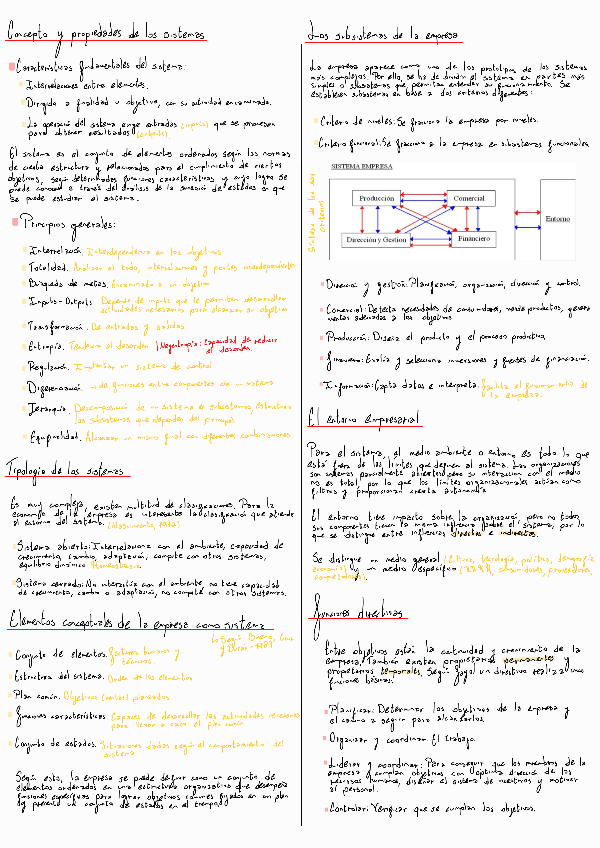 Concepto y propiedades de los sistemas
Características fundamentales del sistema:
Interrelaciones entre elementos.
Dirigido a finalidad u objetivo, con su actividad encaminada.
La operación del sistema exige entradas (inputs) que se procesan
para obtener resultados (outputs)
El sistema es el conjunto de elementos ordenados según las normas
de cierta estructura y relacionados para el cumplimiento de ciertos
objetivos, según determinadas funciones características y cuyo logro se
puede conocer a través del análisis de la sucesión de estados en que
se puede estudiar el sistema.
Principios generales:
Interrelación. Interdependencia en los objetivos
Totalidad. Analizar el todo, interrelaciones y partes interdependientes
Búsqueda de metas. Encaminado a un objetivo
Inputs-Outputs. Depende de inputs que le permiten desarrollar
actividades necesarias para alcanzar su objetivo
Transformación. De entradas y salidas
Entropía. Tendencia al desorden (Neguentropía: Capacidad de reducir
el desorden.
Regulación. Implantar un sistema de control
Diferenciación. de funciones entre componentes de un sistema
Jerarquía. Descomposición de un sistema en subsistemas, estructura a
los subsistemas que dependen del principal
Equifinalidad. Alcanzar un mismo final con diferentes combinaciones
Tipología de los sistemas
Es muy compleja, existen multitud de clasificaciones. Para la
economía de la empresa es interesante la clasificación que atiende
al entorno del sistema.
Sistema abierto: Interrelacione con el ambiente, capacidad de
crecimiento, cambio, adaptación, compite con otros sistemas,
equilibrio dinámico Homeostasis
Sistema cerrado: No interactúa con el ambiente, no tiene capacidad
de crecimiento, cambio o adaptación, no compite con otros sistemas.
Elementos conceptuales de la empresa como sistema
Según Bueno, Cruz
y Durán - 1989
Conjunto de elementos. Factores humanos y
técnicos.
Estructura del sistema. Orden de los elementos
Plan común. Objetivos comunes planeados
Funciones características. Capaces de desarrollar las actividades necesarias
para llevar a cabo el plan común
Conjunto de estados. Situaciones dadas según el comportamiento del
sistema
Según esto, la empresa se puede definir como un conjunto de
elementos ordenados en una estructura organizativa que desempeña
funciones específicas para lograr objetivos comunes fijados en un plan
y presenta un conjunto de estados en el tiempo
Los subsistemas de la empresa
La empresa aparece como uno de los prototipos de los sistemas
más complejos. Por ello, se ha de dividir el sistema en partes más
simples o subsistemas que permitan entender su funcionamiento. Se
establecen subsistemas en base a dos criterios diferentes:
Criterio de niveles: Se fracciona la empresa por niveles.
Criterio funcional: Se fracciona la empresa en subsistemas funcionales
SISTEMA EMPRESA
Producción
Comercial
Dirección y Gestión
Financiero
Entorno
Dirección y gestión: Planificación, organización, dirección y control.
Comercial: Detecta necesidades de consumidores, vende productos, genera
mentos adecuados a los objetivos
Producción: Diseña el producto y el proceso productivo.
Financiero: Evalúa y selecciona inversiones y fuentes de financiación.
Información: Capta datos e interpreta. Facilita el funcionamiento de
la empresa.
El entorno empresarial
Para el sistema, el medio ambiente o entorno es todo lo que
está fuera de los límites que definen al sistema. Las organizaciones
son sistemas parcialmente abiertos pero su interacción con el medio
no es total, por lo que los límites organizacionales actúan como
filtros y proporcionan cierta autonomía
El entorno tiene impacto sobre la organización, pero no todos
sus componentes tienen la misma influencia sobre el sistema, por lo
que se distingue entre influencias directas e indirectas.
Se distingue un medio general (Cultura, tecnología, política, demografía,
economía) y un medio específico (consumidores, proveedores,
competidores).
Funciones directivas
Entre objetivos están la continuidad y crecimiento de la
empresa. También existen propietarios permanentes y
propietarios temporales. Según Fayol un directivo realiza unas
funciones básicas:
Planificar: Determinar los objetivos de la empresa y
el camino a seguir para alcanzarlos.
Organizar y coordinar el trabajo.
Liderar y coordinar: Para conseguir que los miembros de la
empresa cumplan objetivos con óptima dirección de los
recursos humanos, diseñar el sistema de incentivos y motivar
al personal.
Controlar: Verificar que se cumplan los objetivos.